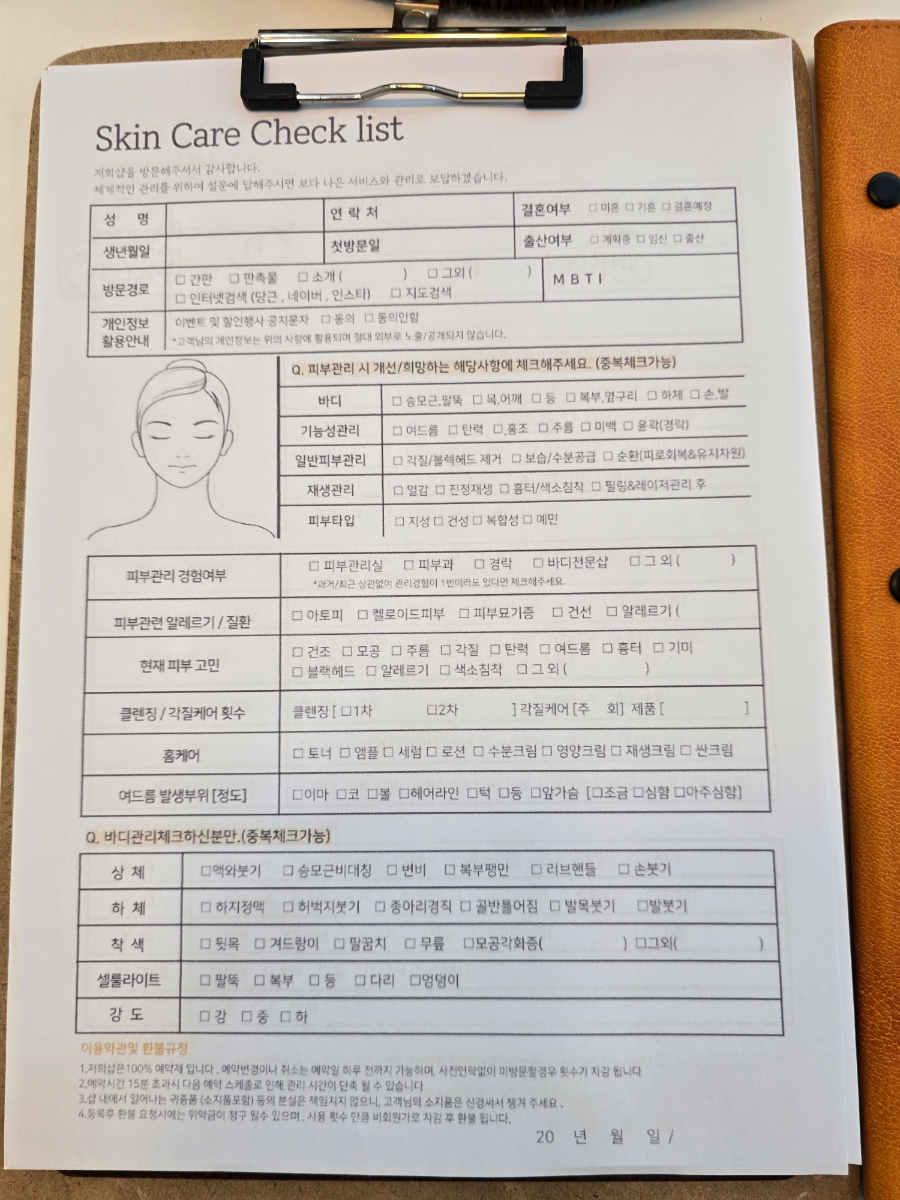 Skin Care Check list
저희샵을 방문해주셔서 감사합니다.
체계적인 관리를 위하여 설문에 답해주시면 보다 나은 서비스와 관리로 보답하겠습니다.
성 명 연 락 처 결혼여부 □ 미혼 □ 기혼 □ 결혼예정
생년월일 첫방문일 출산여부 □ 계획중 □ 임신 □ 출산
방문경로 □ 간판 □ 판촉물 □ 소개 ( ) □ 그외 ( ) M B T I
□ 인터넷검색 (당근 , 네이버 , 인스타) □ 지도검색
개인정보 활용안내 이벤트 및 할인행사 공지문자 □ 동의 □ 동의안함
*고객님의 개인정보는 위의 사항에 활용되며 절대 외부로 노출/공개되지 않습니다.
Q. 피부관리 시 개선/희망하는 해당사항에 체크해주세요. (중복체크가능)
바디 □ 승모근,팔뚝 □ 목,어깨 □ 등 □ 복부,옆구리 □ 하체 □ 손,발
기능성관리 □ 여드름 □ 탄력 □ 홍조 □ 주름 □ 미백 □ 윤곽(경락)
일반피부관리 □ 각질/블랙헤드 제거 □ 보습/수분공급 □ 순환(피로회복&유지차원)
재생관리 □ 열감 □ 진정재생 □ 흉터/색소침착 □ 필링&레이저관리 후
피부타입 □ 지성 □ 건성 □ 복합성 □ 예민
피부관리 경험여부 □ 피부관리실 □ 피부과 □ 경락 □ 바디전문샵 □ 그 외 ( )
*과거/최근 상관없이 관리경험이 1번이라도 있다면 체크해주세요.
피부관련 알레르기 / 질환 □ 아토피 □ 켈로이드피부 □ 피부묘기증 □ 건선 □ 알레르기 (
현재 피부 고민 □ 건조 □ 모공 □ 주름 □ 각질 □ 탄력 □ 여드름 □ 흉터 □ 기미
□ 블랙헤드 □ 알레르기 □ 색소침착 □ 그 외 ( )
클렌징 / 각질케어 횟수 클렌징 [ □1차 □2차 ] 각질케어 [주 회] 제품 [ ]
홈케어 □ 토너 □ 앰플 □ 세럼 □ 로션 □ 수분크림 □ 영양크림 □ 재생크림 □ 싼크림
여드름 발생부위 [정도] □이마 □코 □볼 □헤어라인 □턱 □등 □앞가슴 [□조금 □심함 □아주심함]
Q. 바디관리체크하신분만.(중복체크가능)
상 체 □액와붓기 □ 승모근비대칭 □ 변비 □ 복부팽만 □ 러브핸들 □ 손붓기
하 체 □ 하지정맥 □ 허벅지붓기 □ 종아리경직 □ 골반틀어짐 □ 발목붓기 □발붓기
착 색 □ 뒷목 □ 겨드랑이 □ 팔꿈치 □ 무릎 □모공각화증( ) □그외( )
셀룰라이트 □ 팔뚝 □ 복부 □ 등 □ 다리 □엉덩이
강 도 □ 강 □ 중 □ 하
이용약관및 환불규정
1.저희샵은100% 예약제 입니다 . 예약변경이나 취소는 예약일 하루 전까지 가능하며, 사전연락없이 미방문할경우 횟수가 차감 됩니다
2.예약시간 15분 초과시 다음 예약 스케줄로 인해 관리 시간이 단축 될 수 있습니다
3.샵 내에서 일어나는 귀중품 (소지품포함) 등의 분실은 책임지지 않으니, 고객님의 소지품은 신경써서 챙겨 주세요 .
4.등록후 환불 요청시에는 위약금이 청구 될수 있으며 , 사용 횟수 만큼 비회원가로 차감 후 환불 됩니다.
20 년 월 일 /